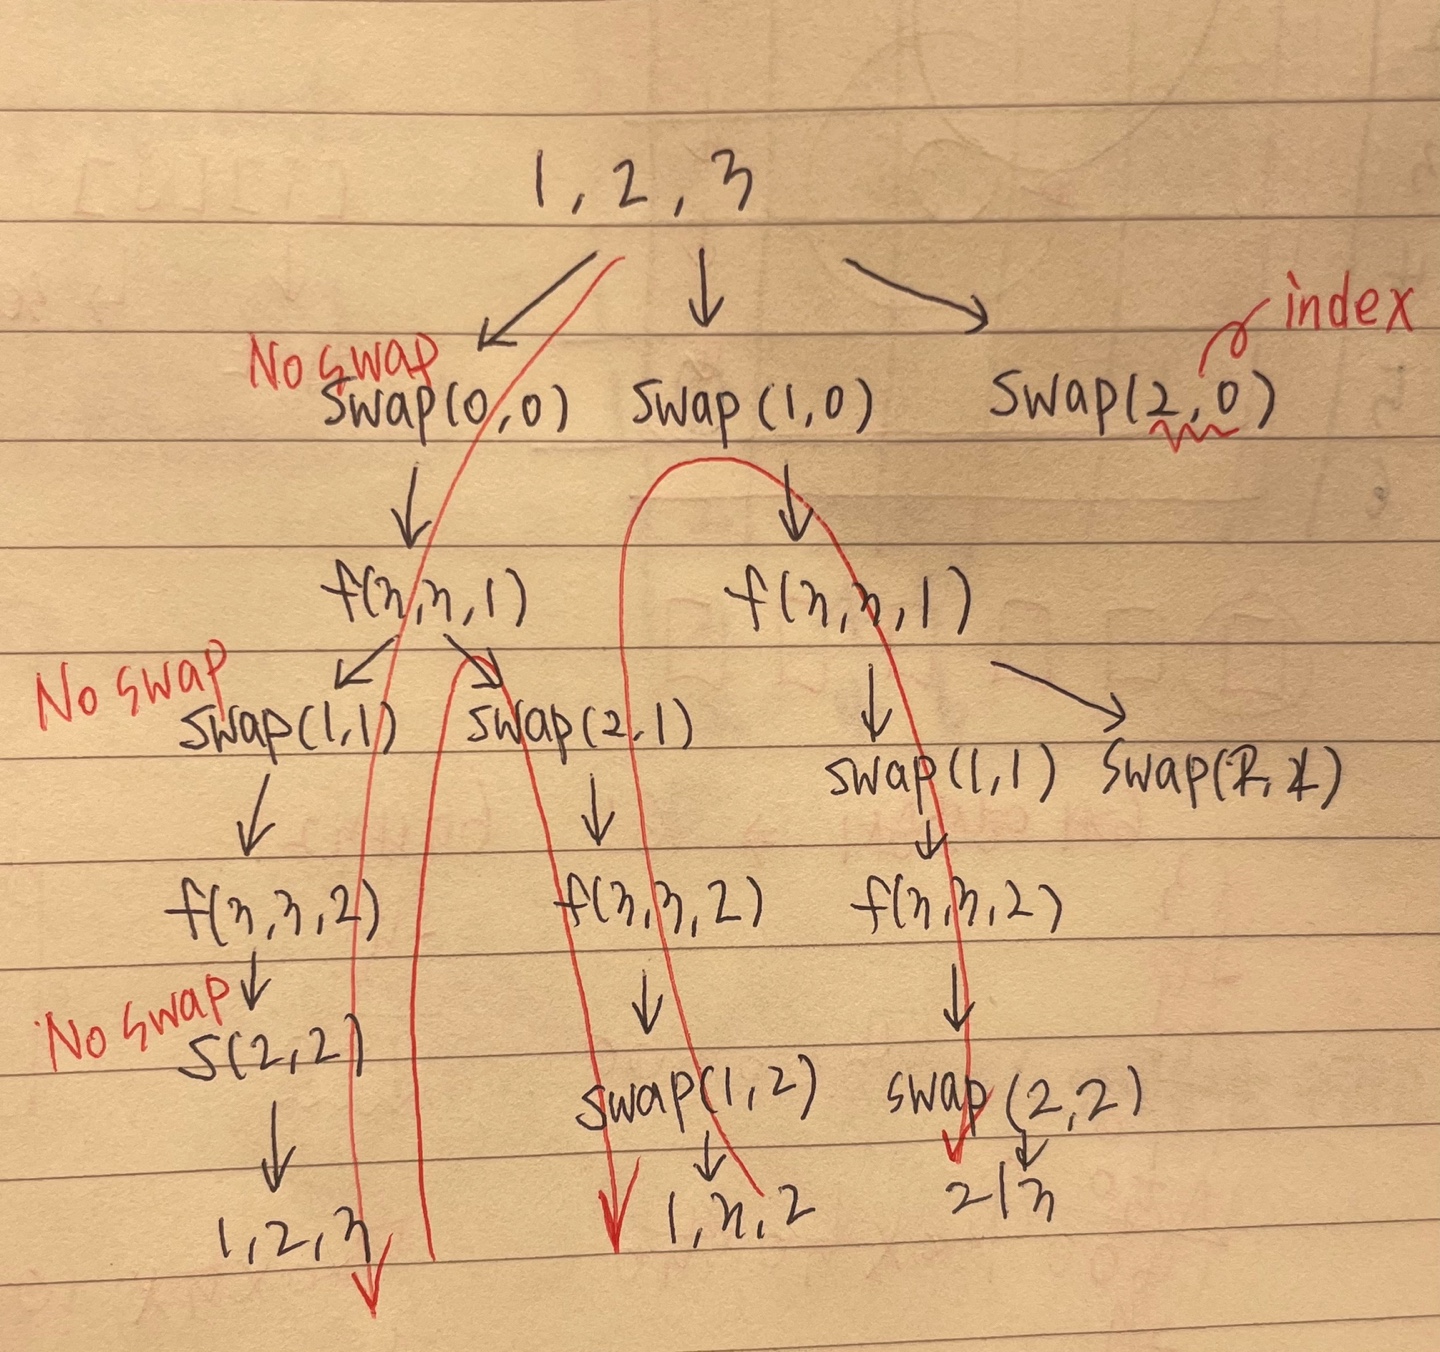 1, 2, 3
index
No swap
swap(0,0) swap(1,0) swap(2,0)
f(3,3,1) f(3,3,1)
No swap
swap(1,1) swap(2,1)
swap(1,1) swap(2,1)
f(3,3,2) f(3,3,2) f(3,3,2)
No swap
S(2,2)
swap(1,2) swap(2,2)
1,2,3 1,3,2 213